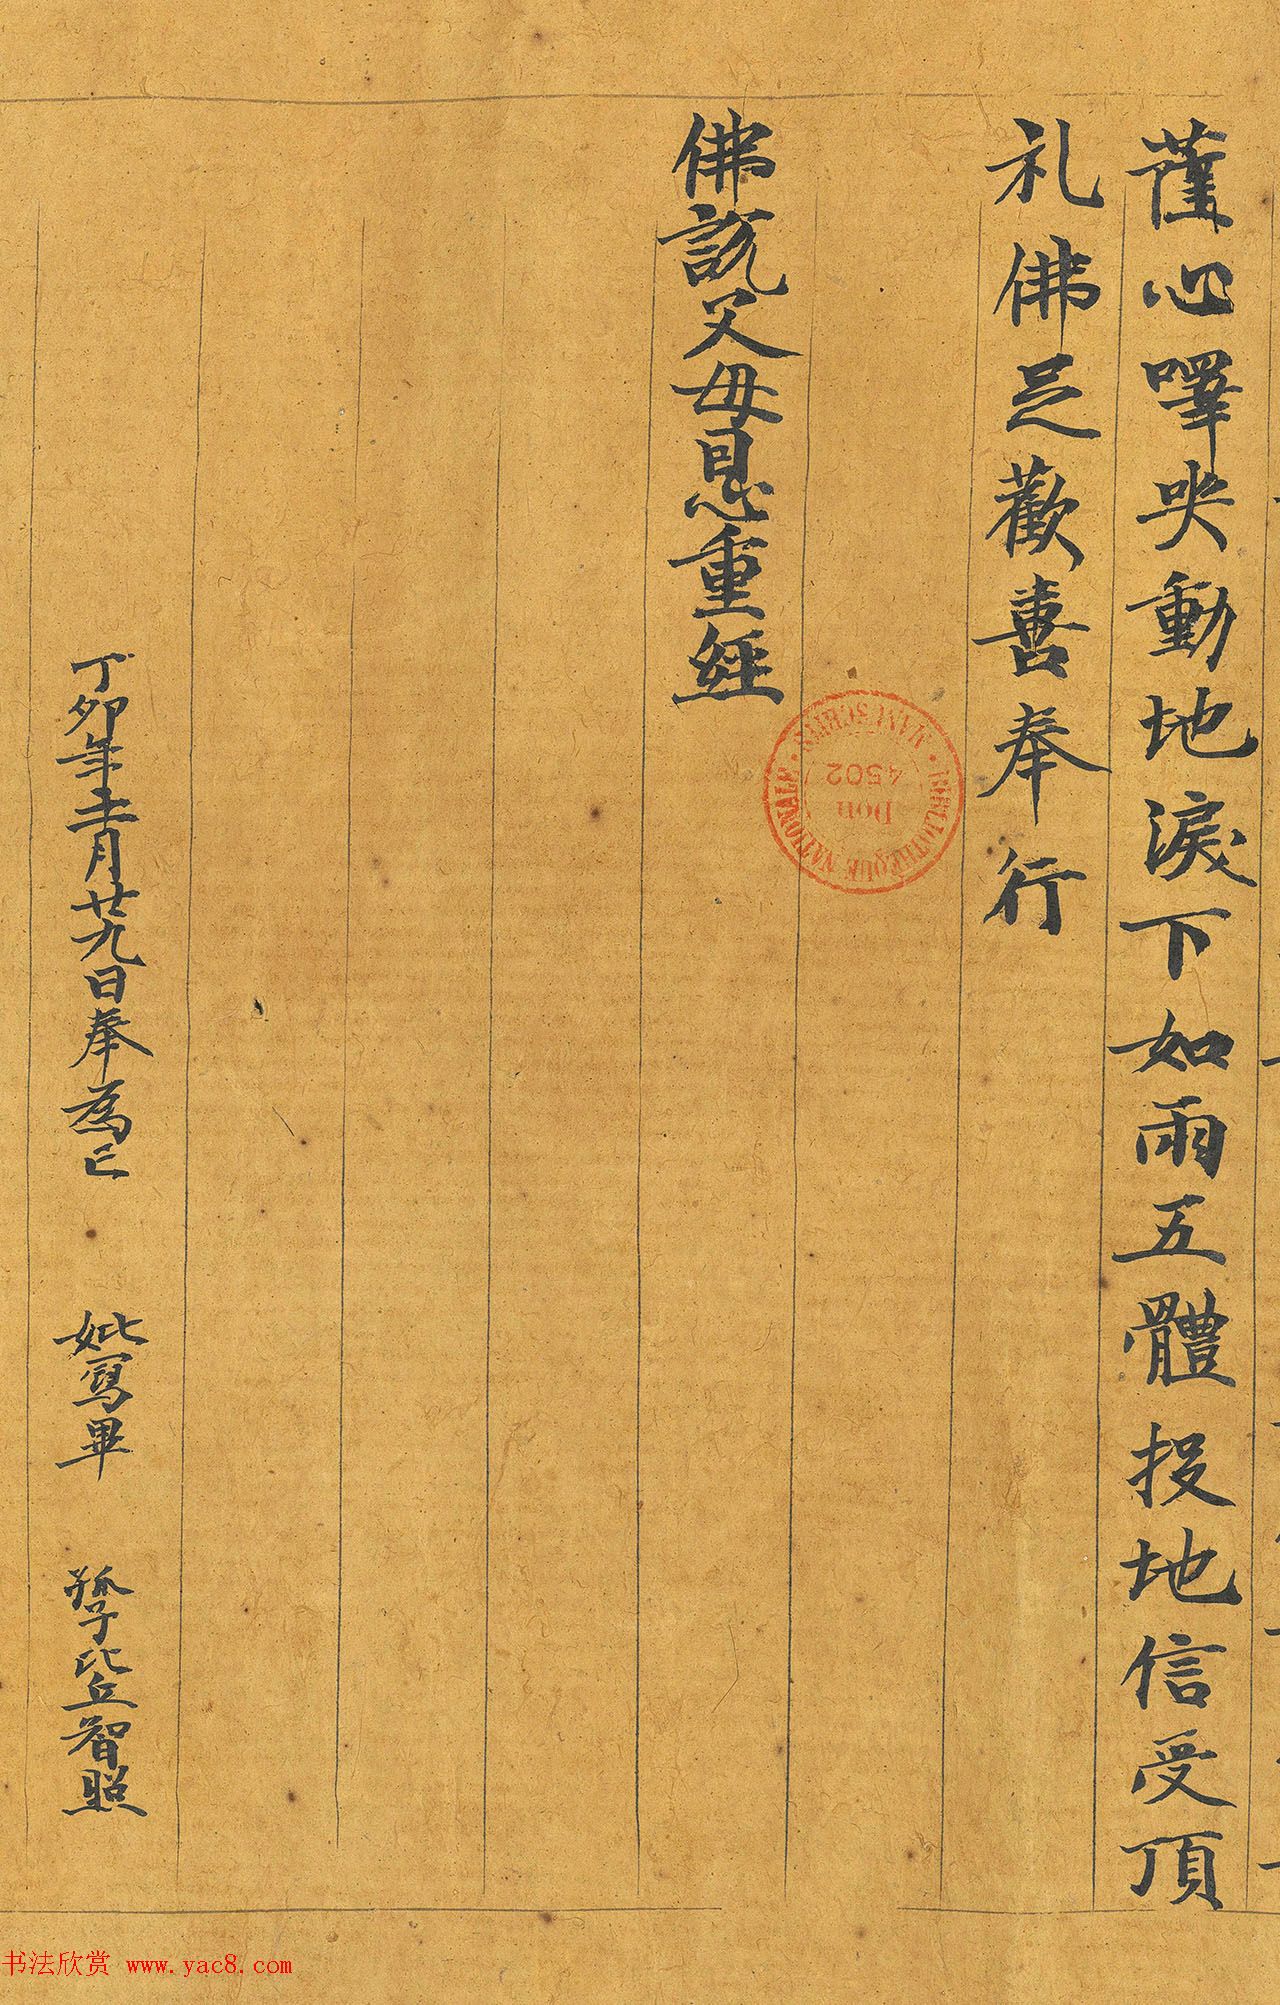 薩心嘷哭動地淚下如雨五體投地信受頂
礼佛足歡喜奉行
佛說父母恩重經
丁卯年十一月廿九日奉為亡
妣寫畢
孤子比丘智照
BIBLIOTHÈQUE NATIONALE • MANUSCRITS •
Don
4502
书法欣赏 www.yac8.com